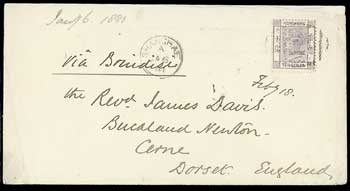 Jany 6. 1891
SHANGHAI
A
Viâ Brindisi
Feby 18.
the Revd James Davis.
Buckland Newton.
Cerne
Dorset. England